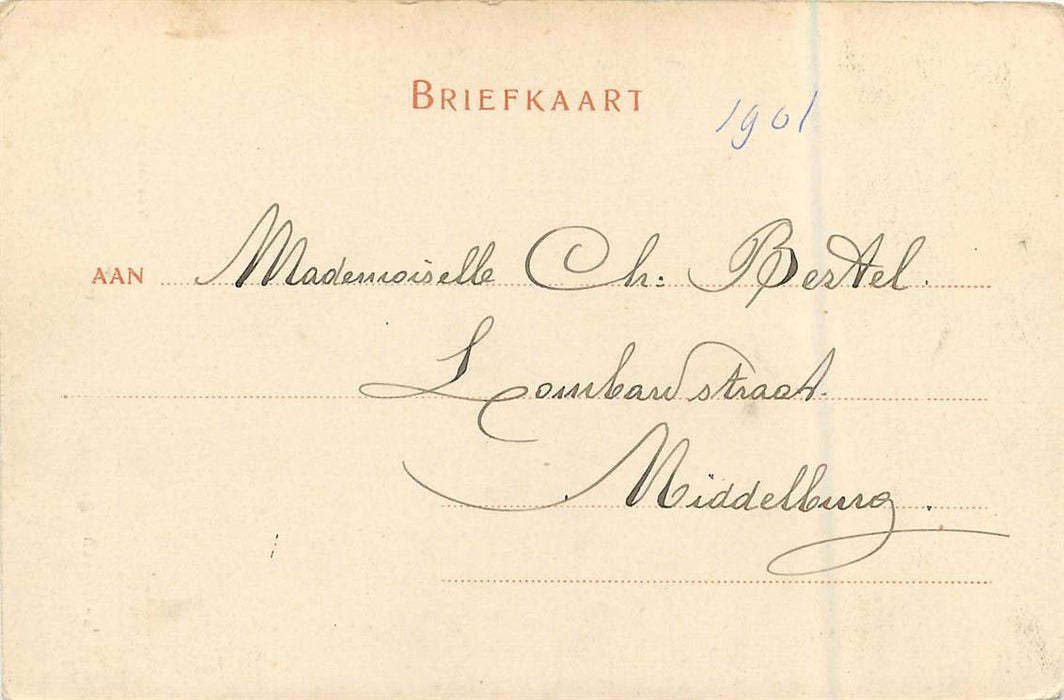 BRIEFKAART
1901
AAN Mademoiselle Ch: Bertel.
Lombardstraat.
Middelburg.